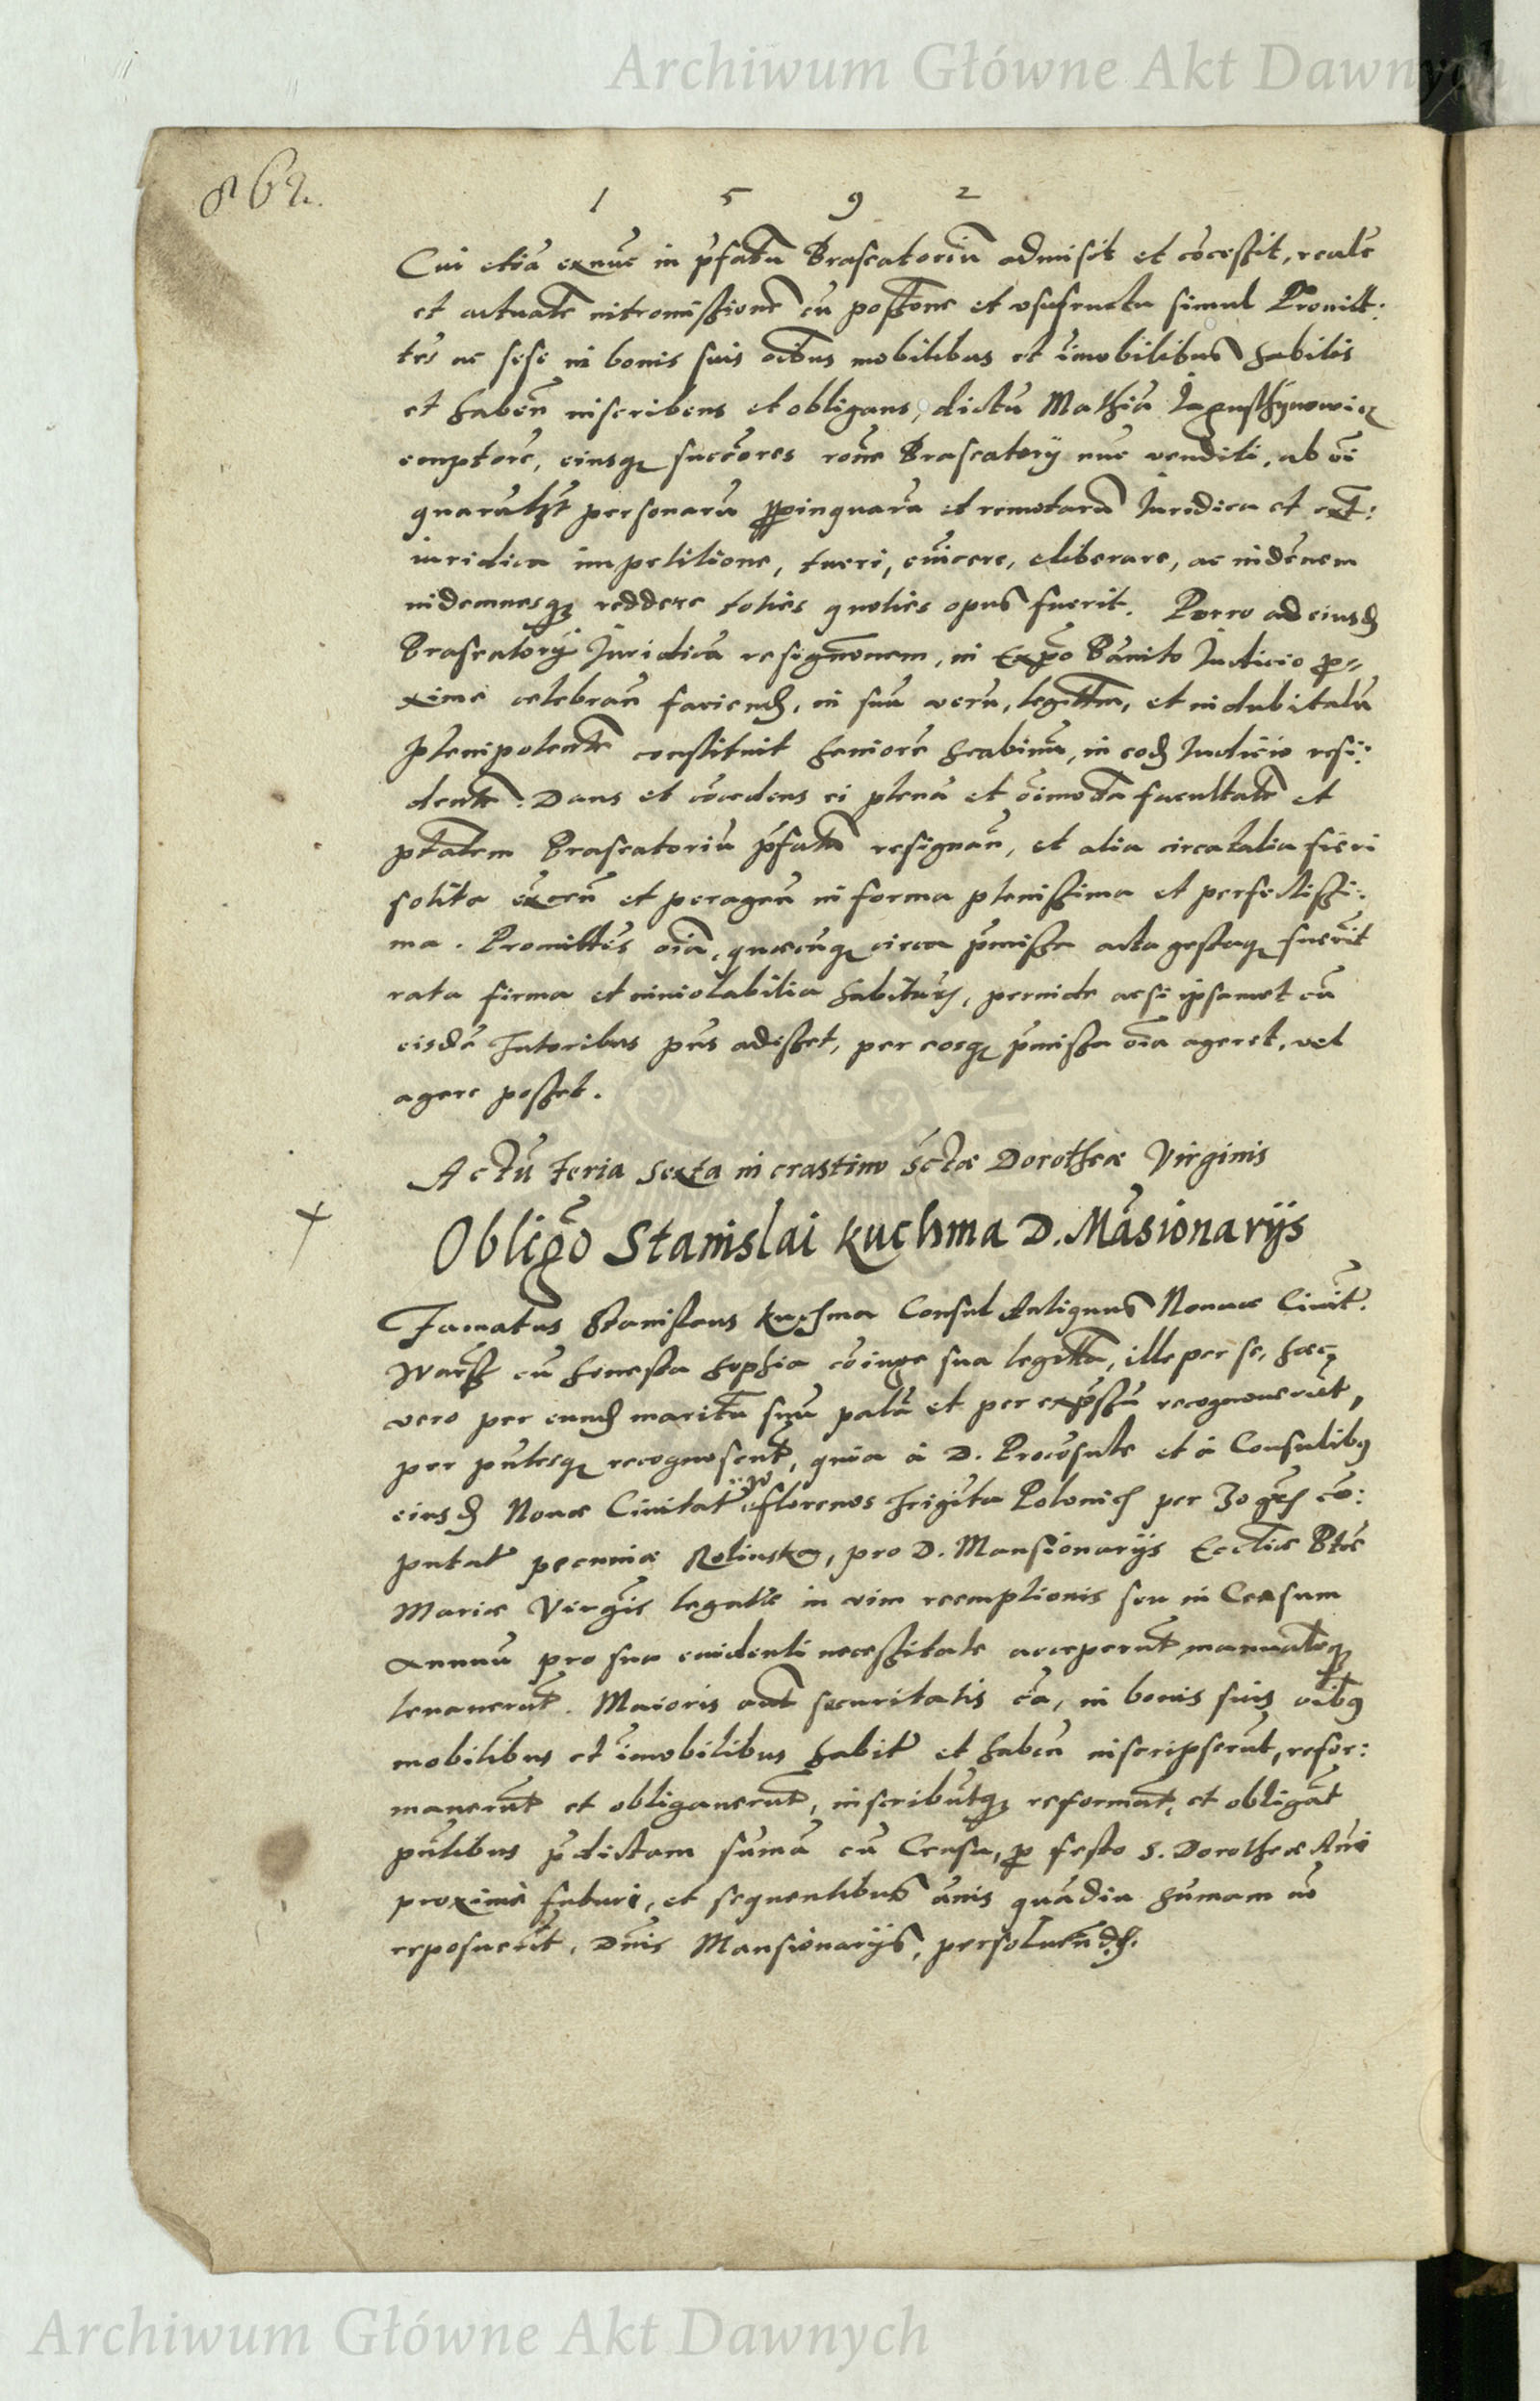 Archiwum Główne Akt Dawnych
862.
1 5 9 2
Cui etiā exnūc in p̄fatū Braseatoriū admisit et cōcessit, realē
et actualē intromissionē cū possione et vsufructu simul Promitt:
tēs ac sese in bonis suis oībus mobilibus et īmobilibus habitis
et habēn inscribens et obligans, dictū Mathiā
emptorē, eiusq; succōres rōne Braseatorÿ nūc venditi, ab oī
quarūlibt personarū ꝓpinquarū et remotarū Iuridica et ext:
iuridica impetitione, tueri, euīcere, eliberare, ac indēnem
indemnesq; reddere toties quoties opus fuerit. Porro ad eiusd
Braseatorÿ Iuridicā resignōnem, in Expō Bānito Iudicio pro=
xime celebran faciend, in suū verū, legittm̄, et indubitatū
plenipotentē constituit seniorē scabinū, in eod Iudicio resi:
dentē. Dans et cōcedens ei plenā et oīmodā facultatē et
ptātem Braseatoriū p̄fatū resignan̄, et alia circa talia fieri
solita exeen̄ et peragen̄ in forma plenissima et perfectissi:
ma. Promittēs oīa, quæcūq; circa p̄missa acta gestaq; fuerīt
rata firma et inuiolabilia habitur, perinde acsi ipsamet cū
eisdē Tutoribus p̄ns adesset, per eosq; p̄missa oīa ageret, vel
agere posset.
Actū Feria Sexta in crastino Sctæ Dorotheæ Virginis
Obligo Stanislai Kuchma D. Māsionarijs
Famatus Stanislaus Kuchma Consul Antiquus Nouæ Ciuit.
Warss cū honesta Sophia cōiuge sua legittā, ille per se, hæc
vero per eund maritū suū palā et per exp̄ssū recognouerūt,
per p̄ntesq; recognoscūt, quia à D. Procōsule et à Consulibus
eiusd Nouæ Ciuitat 30 florenos Trigīta Polonic per 30 gros cō:
putat pecuniæ, pro D. Mansionarijs Ecclīæ Btæ
Mariæ Virgīs legatæ in vim reemptionis seu in Censum
Annuū pro sua euidenti necessitate acceperūt manualiterq;
leuauerūt. Maioris aut securitatis cā, in bonis suis oībus
mobilibus et īmobilibus habit et haben̄ inscripserūt, refor:
mauerūt et obligauerūt, inscribūtq; reformāt, et obligāt
p̄ntibus p̄dictam sumā cū Censu, pro festo S. Dorotheæ Anī
proximè futuri, et sequentibus ānis quādiu sumam nō
reposuerīt, Dnīs Mansionarijs, persoluend.
Archiwum Główne Akt Dawnych